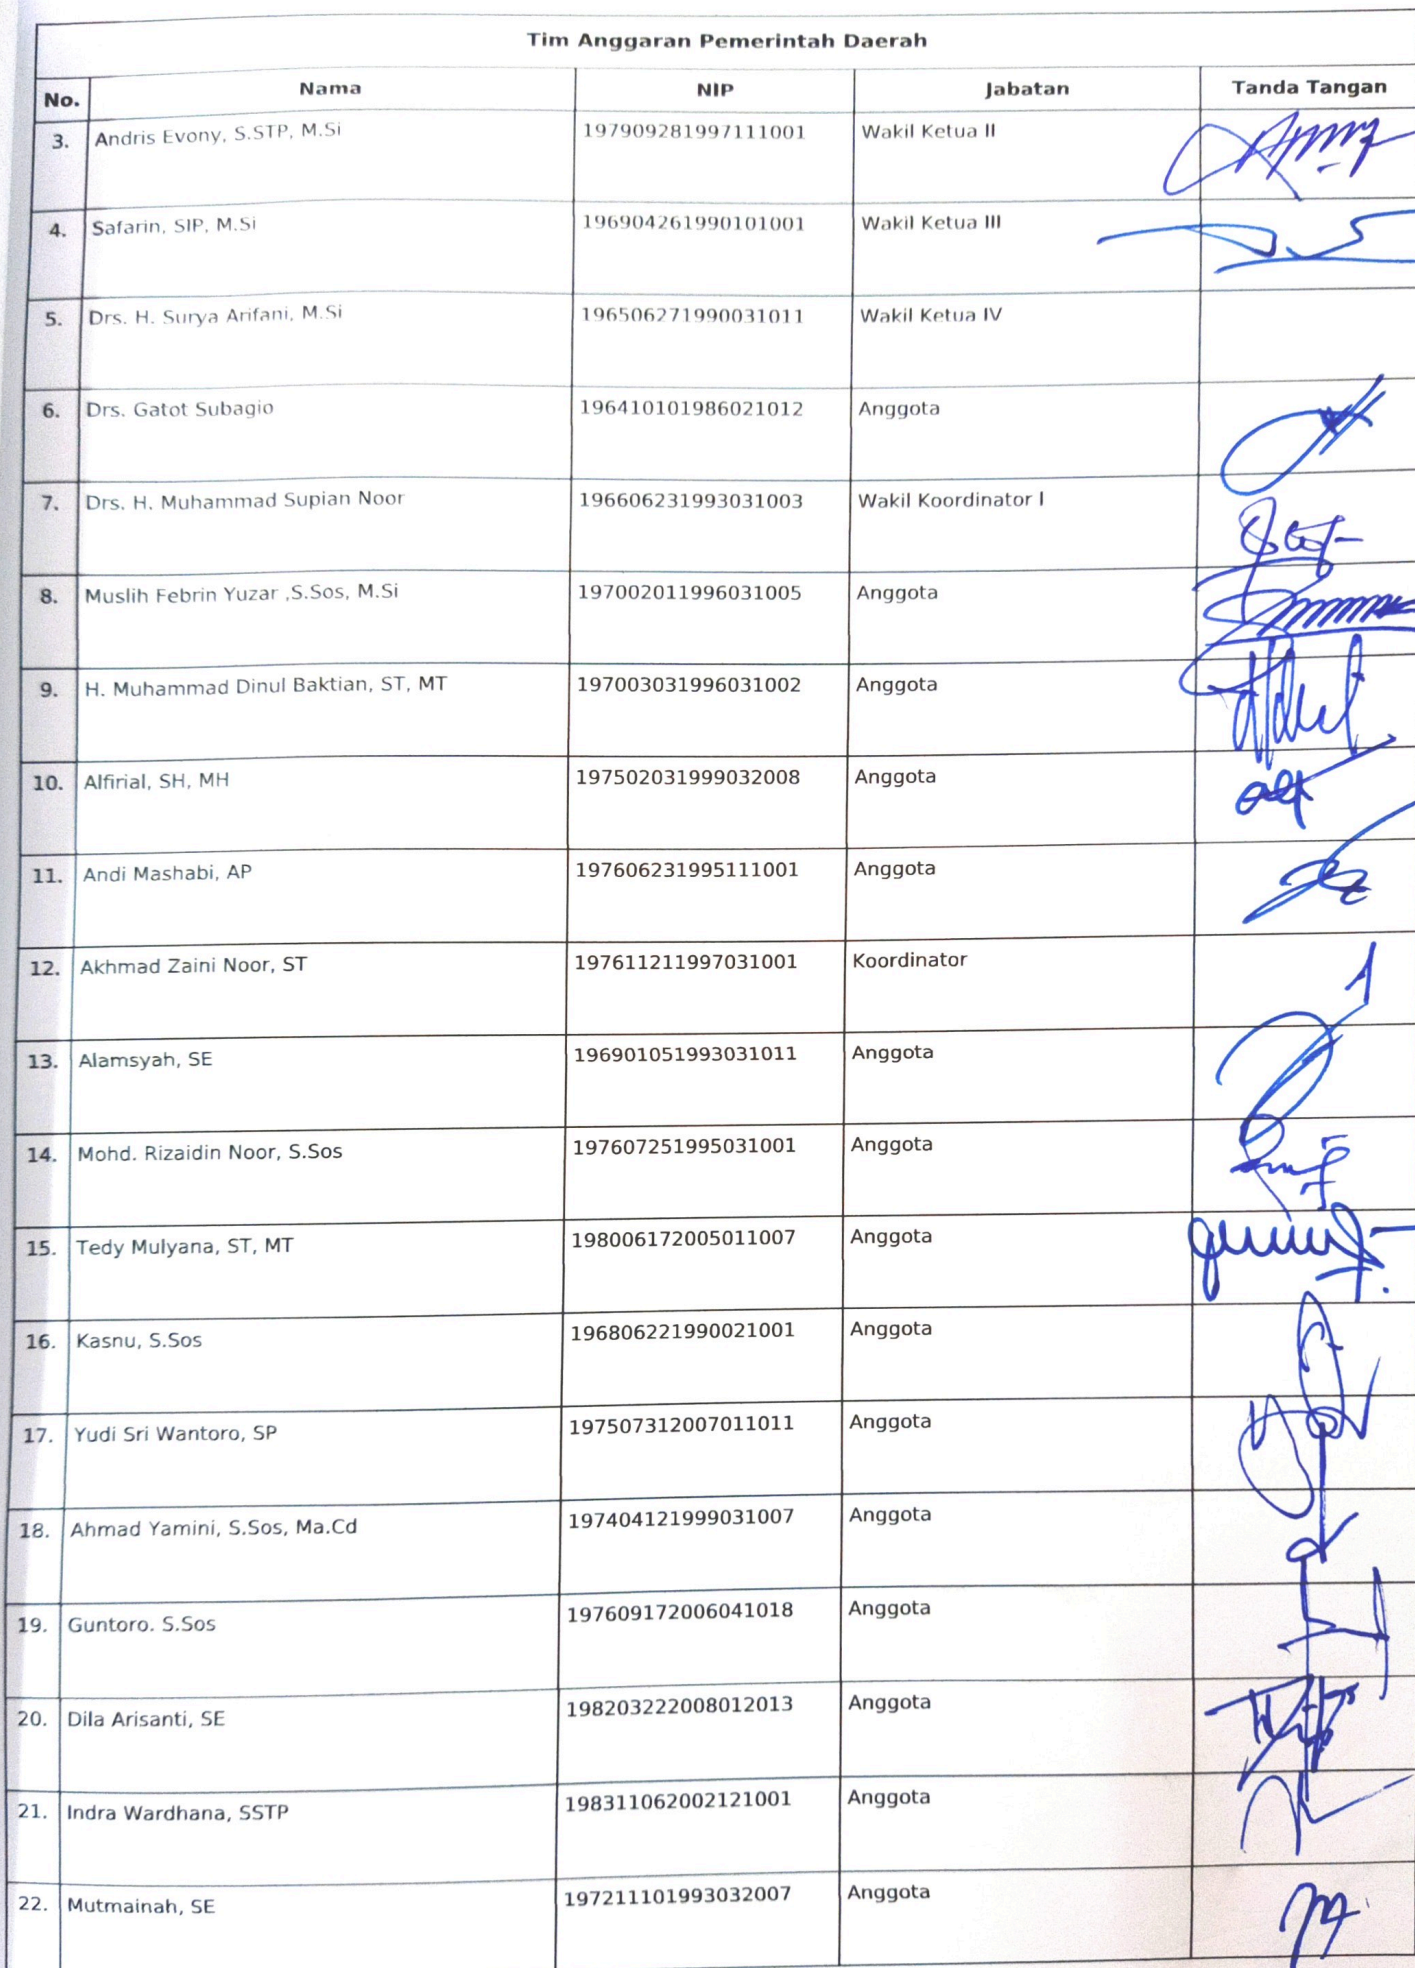 Tim Anggaran Pemerintah Daerah
No. Nama NIP Jabatan Tanda Tangan
3. Andris Evony, S.STP, M.Si 197909281997111001 Wakil Ketua II
4. Safarin, SIP, M.Si 196904261990101001 Wakil Ketua III
5. Drs. H. Surya Arifani, M.Si 196506271990031011 Wakil Ketua IV
6. Drs. Gatot Subagio 196410101986021012 Anggota
7. Drs. H. Muhammad Supian Noor 196606231993031003 Wakil Koordinator I
8. Muslih Febrin Yuzar ,S.Sos, M.Si 197002011996031005 Anggota
9. H. Muhammad Dinul Baktian, ST, MT 197003031996031002 Anggota
10. Alfirial, SH, MH 197502031999032008 Anggota
11. Andi Mashabi, AP 197606231995111001 Anggota
12. Akhmad Zaini Noor, ST 197611211997031001 Koordinator
13. Alamsyah, SE 196901051993031011 Anggota
14. Mohd. Rizaidin Noor, S.Sos 197607251995031001 Anggota
15. Tedy Mulyana, ST, MT 198006172005011007 Anggota
16. Kasnu, S.Sos 196806221990021001 Anggota
17. Yudi Sri Wantoro, SP 197507312007011011 Anggota
18. Ahmad Yamini, S.Sos, Ma.Cd 197404121999031007 Anggota
19. Guntoro. S.Sos 197609172006041018 Anggota
20. Dila Arisanti, SE 198203222008012013 Anggota
21. Indra Wardhana, SSTP 198311062002121001 Anggota
22. Mutmainah, SE 197211101993032007 Anggota